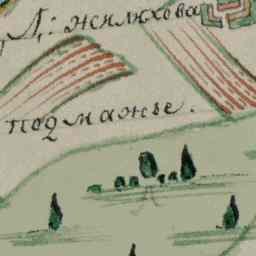 Д: жилихова
подмажье.